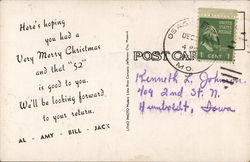 Here's hoping
you had a
Very Merry Christmas
and that "52"
is good to you.
We'll be looking forward
to your return.
AL - AMY - BILL - JACK
POST CARD
OSAGE
DEC
MO.
1 CENT 1
Kenneth L. Johnson
409 2nd St. N.
Humboldt, Iowa